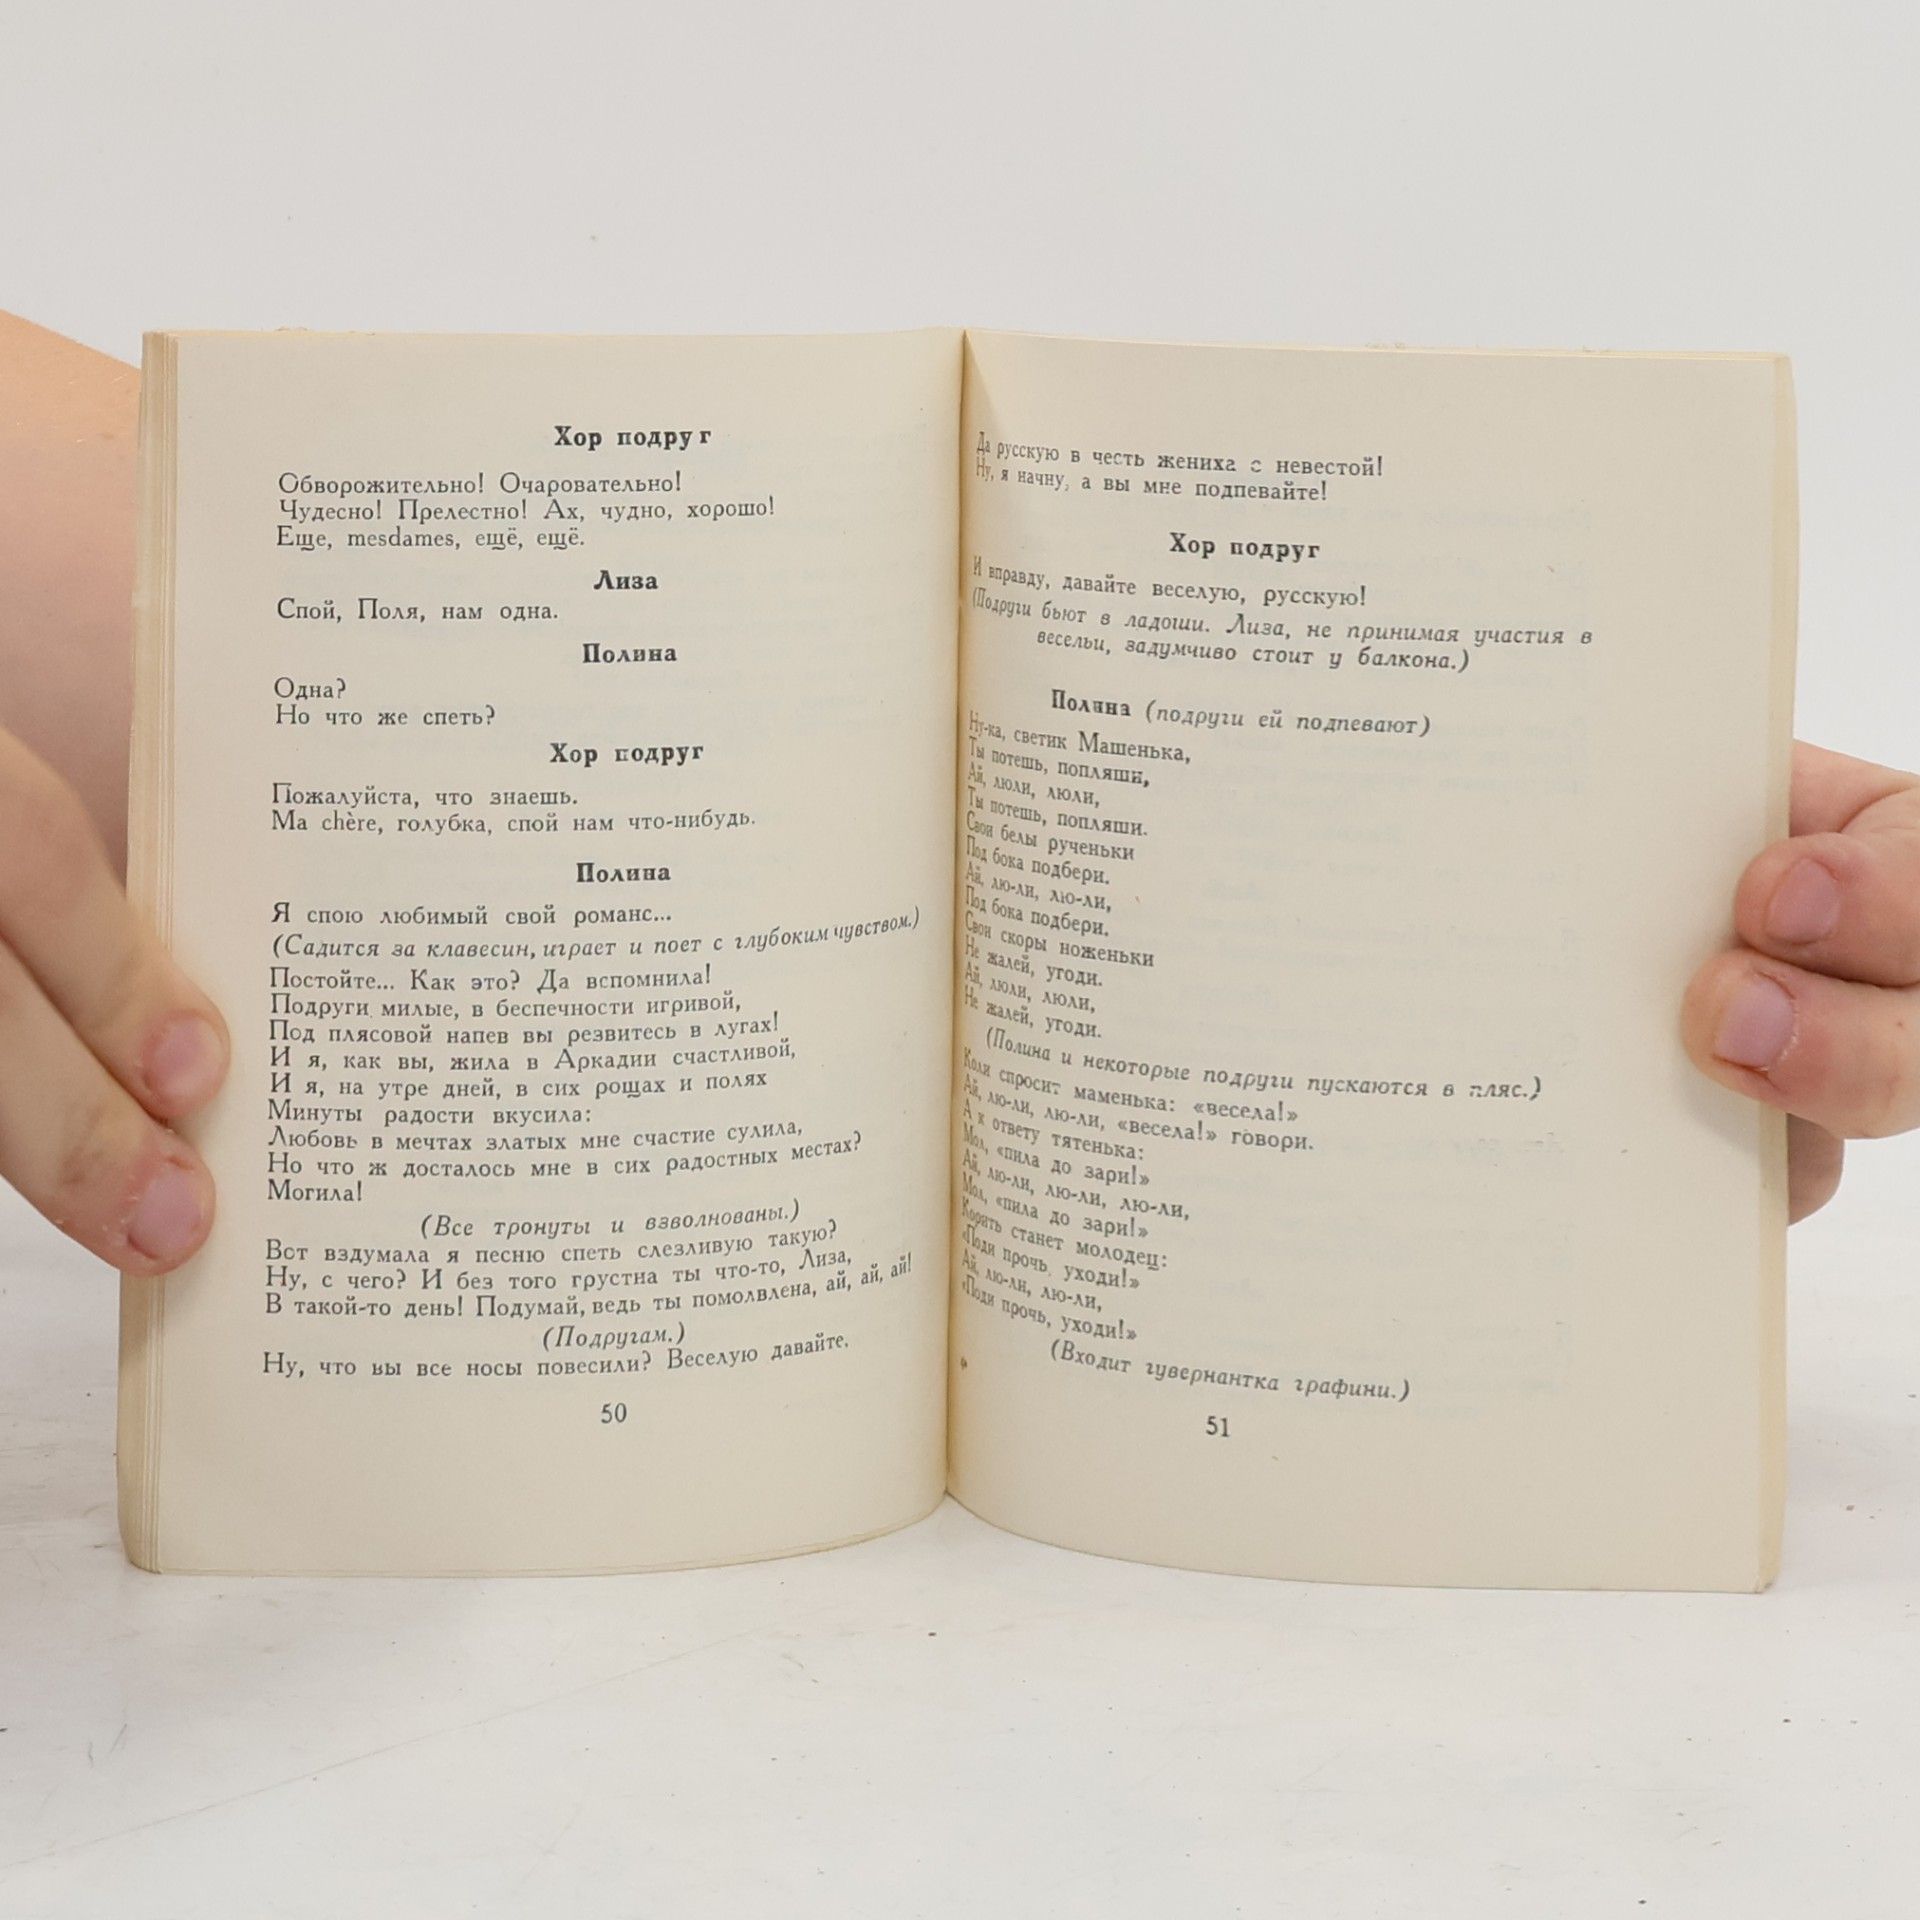 Хор подруг
Обворожительно! Очаровательно!
Чудесно! Прелестно! Ах, чудно, хорошо!
Еще, mesdames, ещё, ещё.
Лиза
Спой, Поля, нам одна.
Полина
Одна?
Но что же спеть?
Хор подруг
Пожалуйста, что знаешь.
Ma chère, голубка, спой нам что-нибудь.
Полина
Я спою любимый свой романс...
(Садится за клавесин, играет и поет с глубоким чувством.)
Постойте... Как это? Да вспомнила!
Подруги милые, в беспечности игривой,
Под плясовой напев вы резвитесь в лугах!
И я, как вы, жила в Аркадии счастливой,
И я, на утре дней, в сих рощах и полях
Минуты радости вкусила:
Любовь в мечтах златых мне счастие сулила,
Но что ж досталось мне в сих радостных местах?
Могила!
(Все тронуты и взволнованы.)
Вот вздумала я песню спеть слезливую такую?
Ну, с чего? И без того грустна ты что-то, Лиза,
В такой-то день! Подумай, ведь ты помолвлена, ай, ай, ай!
(Подругам.)
Ну, что вы все носы повесили? Веселую давайте.
50
Да русскую в честь жениха с невестой!
Ну, я начну, а вы мне подпевайте!
Хор подруг
И вправду, давайте веселую, русскую!
(Подруги бьют в ладоши. Лиза, не принимая участия в
весельи, задумчиво стоит у балкона.)
Полина (подруги ей подпевают)
Ну-ка, светик Машенька,
Ты потешь, попляши,
Ай, люли, люли,
Ты потешь, попляши.
Свои белы рученьки
Под бока подбери.
Ай, лю-ли, лю-ли,
Под бока подбери.
Свои скоры ноженьки
Не жалей, угоди.
Ай, люли, люли,
Не жалей, угоди.
(Полина и некоторые подруги пускаются в пляс.)
Коли спросит маменька: «весела!»
Ай, лю-ли, лю-ли, «весела!» говори.
А к ответу тятенька:
Мол, «пила до зари!»
Ай, лю-ли, лю-ли, лю-ли,
Мол, «пила до зари!»
Корить станет молодец:
«Поди прочь, уходи!»
Ай, лю-ли, лю-ли,
«Поди прочь, уходи!»
(Входит гувернантка графини.)
51